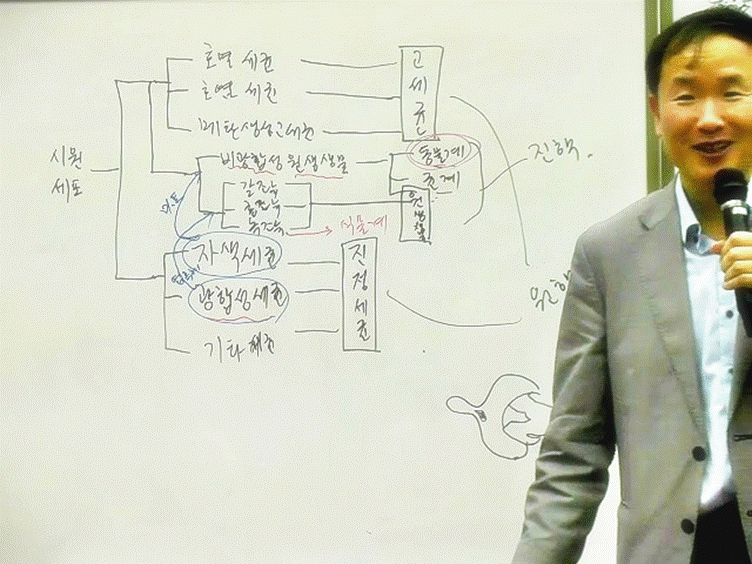 호열세균
고세균
호염세균
메탄생성고세균
시원
세포
비광합성원생생물
동물계
균계
진핵.
갈조류
홍조류
녹조류
원생생물
식물계
미토
자색세균
진정세균
광합성세균
원핵
기타세균